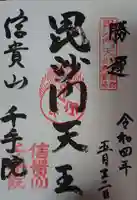 勝運
令和四年
五月十二日
毘沙門天王
信貴山
千手院